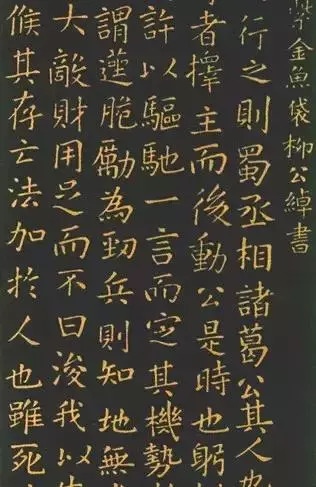 金魚袋柳公綽書
行之則蜀丞相諸葛公其人也
者擇主而後動公是時也躬
許以驅馳一言而定其機勢
謂遷脆勵為勁兵則知地無
大敵財用足而不曰浚我以
俟其存亡法加於人也雖死